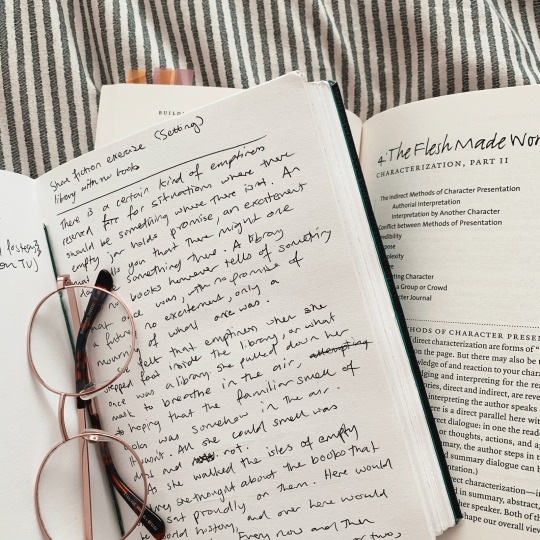 Short fiction exercise (Setting)
library with no books
There is a certain kind of emptiness
reserved for situations where there
should be something where there isnt. An
empty jar holds promise, an excitement
tells you that there might one
be something there. A library
books however tells of something
was, with no promise of
a future, no excitement, only a
mourning of what once was.
felt that emptiness when she
stepped foot inside the library, or what
once was a library she pulled down her
mask to breathe in the air, attempting
to hoping that the familiar smell of
books was somehow in the air.
It wasn't. All she could smell was
dust and rot.
As she walked the isles of empty
she thought about the books that
sat proudly on them. Here would
world history, and over here would
Every now and then
or two,
BUILD
4: The Flesh Made Wor
CHARACTERIZATION, PART II
The Indirect Methods of Character Presentation
Authorial Interpretation
Interpretation by Another Character
Conflict between Methods of Presentation
a Group or Crowd
METHODS OF CHARACTER PRESEN
direct characterization are forms of "
on the page. But there may also be t
knowledge of and reaction to your chara
judging and interpreting for the rea
ories, direct and indirect, are revea
interpreting the author speaks
re is a direct parallel here with
direct dialogue: in one the reade
or thoughts, actions, and ap
the author steps in t
d summary dialogue can b
ntation.)
direct characterization—i
d in summary, abstract,
her speaker. Both of th
shape our overall view